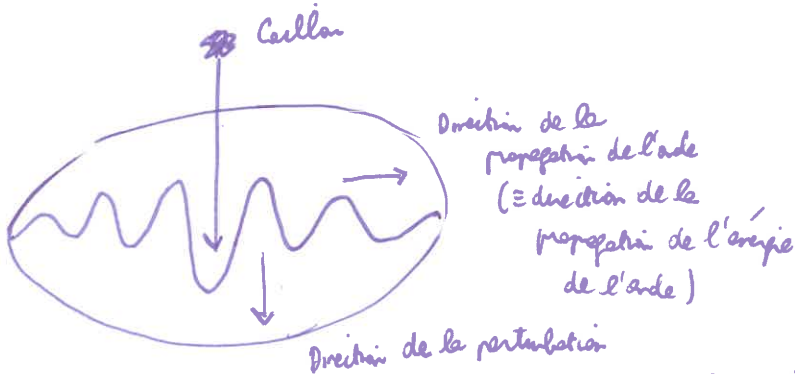 Caillou
Direction de la
propagation de l'onde
(≡ direction de la
propagation de l'énergie
de l'onde)
Direction de la perturbation